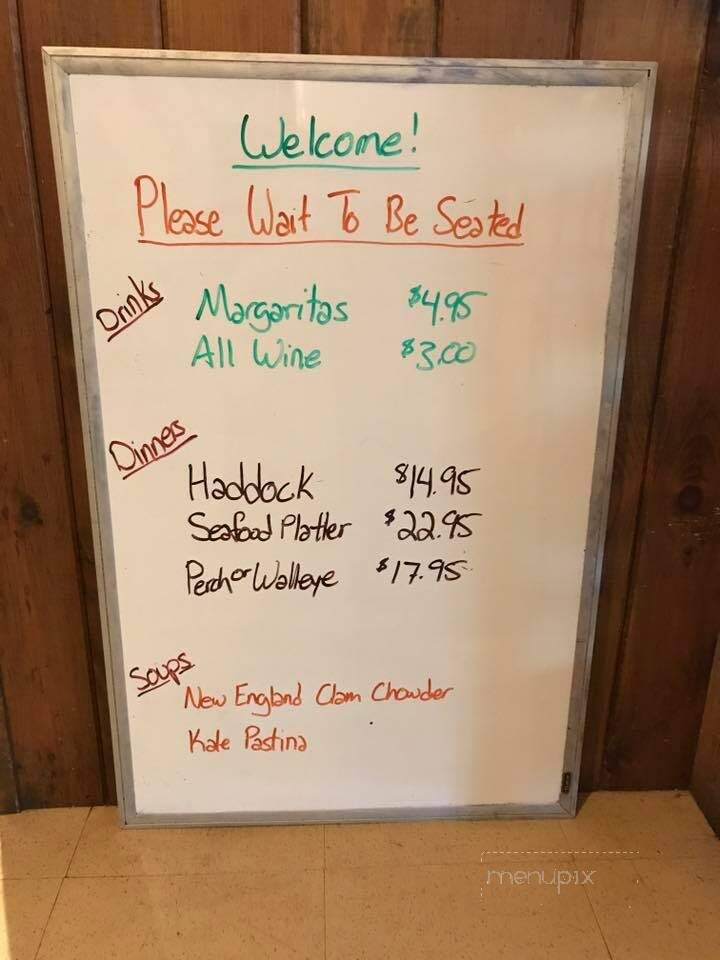 Welcome!
Please Wait To Be Seated
Drinks
Margaritas $4.95
All Wine $3.00
Dinners
Haddock $14.95
Seafood Platter $22.95
Perch or Walleye $17.95
Soups
New England Clam Chowder
Kale Pastina
menupix